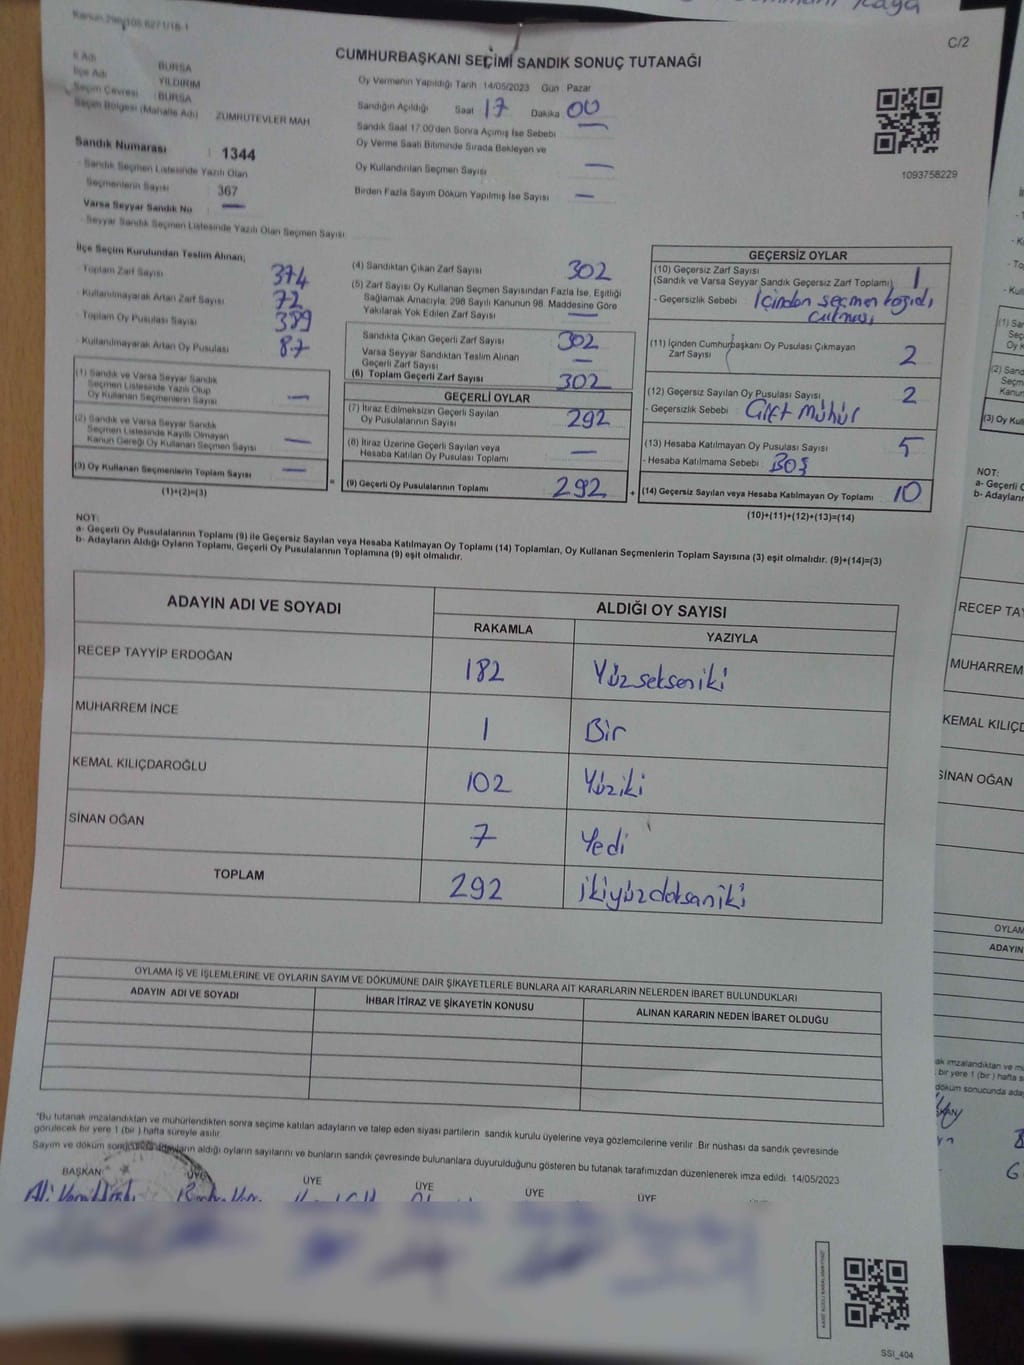 C/2
CUMHURBAŞKANI SEÇİMİ SANDIK SONUÇ TUTANAĞI
İl Adı BURSA
İlçe Adı YILDIRIM
Seçim Çevresi BURSA
Seçim Bölgesi (Mahalle Adı) ZÜMRÜTEVLER MAH
Sandık Numarası 1344
- Sandık Seçmen Listesinde Yazılı Olan
Seçmenlerin Sayısı 367
Varsa Seyyar Sandık No —
- Seyyar Sandık Seçmen Listesinde Yazılı Olan Seçmen Sayısı
Oy Vermenin Yapıldığı Tarih 14/05/2023 Gün Pazar
Sandığın Açıldığı Saat 17 Dakika 00
Sandık Saat 17.00'den Sonra Açımış İse Sebebi —
Oy Verme Saati Bitiminde Sırada Bekleyen ve
Oy Kullandırılan Seçmen Sayısı —
Birden Fazla Sayım Döküm Yapılmış İse Sayısı —
1093758229
İlçe Seçim Kurulundan Teslim Alınan;
- Toplam Zarf Sayısı 374
- Kullanılmayarak Artan Zarf Sayısı 72
- Toplam Oy Pusulası Sayısı 389
- Kullanılmayarak Artan Oy Pusulası 87
(1) Sandık ve Varsa Seyyar Sandık
Seçmen Listesinde Yazılı Olup
Oy Kullanan Seçmenlerin Sayısı —
(2) Sandık ve Varsa Seyyar Sandık
Seçmen Listesinde Kayıtlı Olmayan
Kanun Gereği Oy Kullanan Seçmen Sayısı —
(3) Oy Kullanan Seçmenlerin Toplam Sayısı —
(1)+(2)=(3)
(4) Sandıktan Çıkan Zarf Sayısı 302
(5) Zarf Sayısı Oy Kullanan Seçmen Sayısından Fazla İse, Eşitliği
Sağlamak Amacıyla; 298 Sayılı Kanunun 98. Maddesine Göre
Yakılarak Yok Edilen Zarf Sayısı —
Sandıkta Çıkan Geçerli Zarf Sayısı 302
Varsa Seyyar Sandıktan Teslim Alınan
Geçerli Zarf Sayısı —
(6) Toplam Geçerli Zarf Sayısı 302
GEÇERLİ OYLAR
(7) İtiraz Edilmeksizin Geçerli Sayılan
Oy Pusulalarının Sayısı 292
(8) İtiraz Üzerine Geçerli Sayılan veya
Hesaba Katılan Oy Pusulası Toplamı —
(9) Geçerli Oy Pusulalarının Toplamı 292
GEÇERSİZ OYLAR
(10) Geçersiz Zarf Sayısı 1
(Sandık ve Varsa Seyyar Sandık Geçersiz Zarf Toplamı)
- Geçersizlik Sebebi İçinden seçmen kağıdı
çıkması
(11) İçinden Cumhurbaşkanı Oy Pusulası Çıkmayan
Zarf Sayısı 2
(12) Geçersiz Sayılan Oy Pusulası Sayısı 2
- Geçersizlik Sebebi Çift Mühür
(13) Hesaba Katılmayan Oy Pusulası Sayısı 5
- Hesaba Katılmama Sebebi BOŞ
(14) Geçersiz Sayılan veya Hesaba Katılmayan Oy Toplamı 10
(10)+(11)+(12)+(13)=(14)
NOT:
a- Geçerli Oy Pusulalarının Toplamı (9) ile Geçersiz Sayılan veya Hesaba Katılmayan Oy Toplamı (14) Toplamları, Oy Kullanan Seçmenlerin Toplam Sayısına (3) eşit olmalıdır. (9)+(14)=(3)
b- Adayların Aldığı Oyların Toplamı, Geçerli Oy Pusulalarının Toplamına (9) eşit olmalıdır.
ADAYIN ADI VE SOYADI ALDIĞI OY SAYISI
RAKAMLA YAZIYLA
RECEP TAYYİP ERDOĞAN 182 Yüzsekseniki
MUHARREM İNCE 1 Bir
KEMAL KILIÇDAROĞLU 102 Yüziki
SİNAN OĞAN 7 Yedi
TOPLAM 292 ikiyüzdoksaniki
OYLAMA İŞ VE İŞLEMLERİNE VE OYLARIN SAYIM VE DÖKÜMÜNE DAİR ŞİKAYETLERLE BUNLARA AİT KARARLARIN NELERDEN İBARET BULUNDUKLARI
ADAYIN ADI VE SOYADI İHBAR İTİRAZ VE ŞİKAYETİN KONUSU ALINAN KARARIN NEDEN İBARET OLDUĞU
"Bu tutanak imzalandıktan ve mühürlendikten sonra seçime katılan adayların ve talep eden siyasi partilerin sandık kurulu üyelerine veya gözlemcilerine verilir. Bir nüshası da sandık çevresinde
görülecek bir yere 1 (bir ) hafta süreyle asılır.
Sayım ve döküm sonucunda adayların aldığı oyların sayılarını ve bunların sandık çevresinde bulunanlara duyurulduğunu gösteren bu tutanak tarafımızdan düzenlenerek imza edildi. 14/05/2023
BAŞKAN ÜYE ÜYE ÜYE ÜYE ÜYE
SSI_404
RECEP TAY
MUHARREM
KEMAL KILIÇD
SİNAN OĞAN
NOT:
a- Geçerli O
b- Adayların
OYLAM
ADAYIN